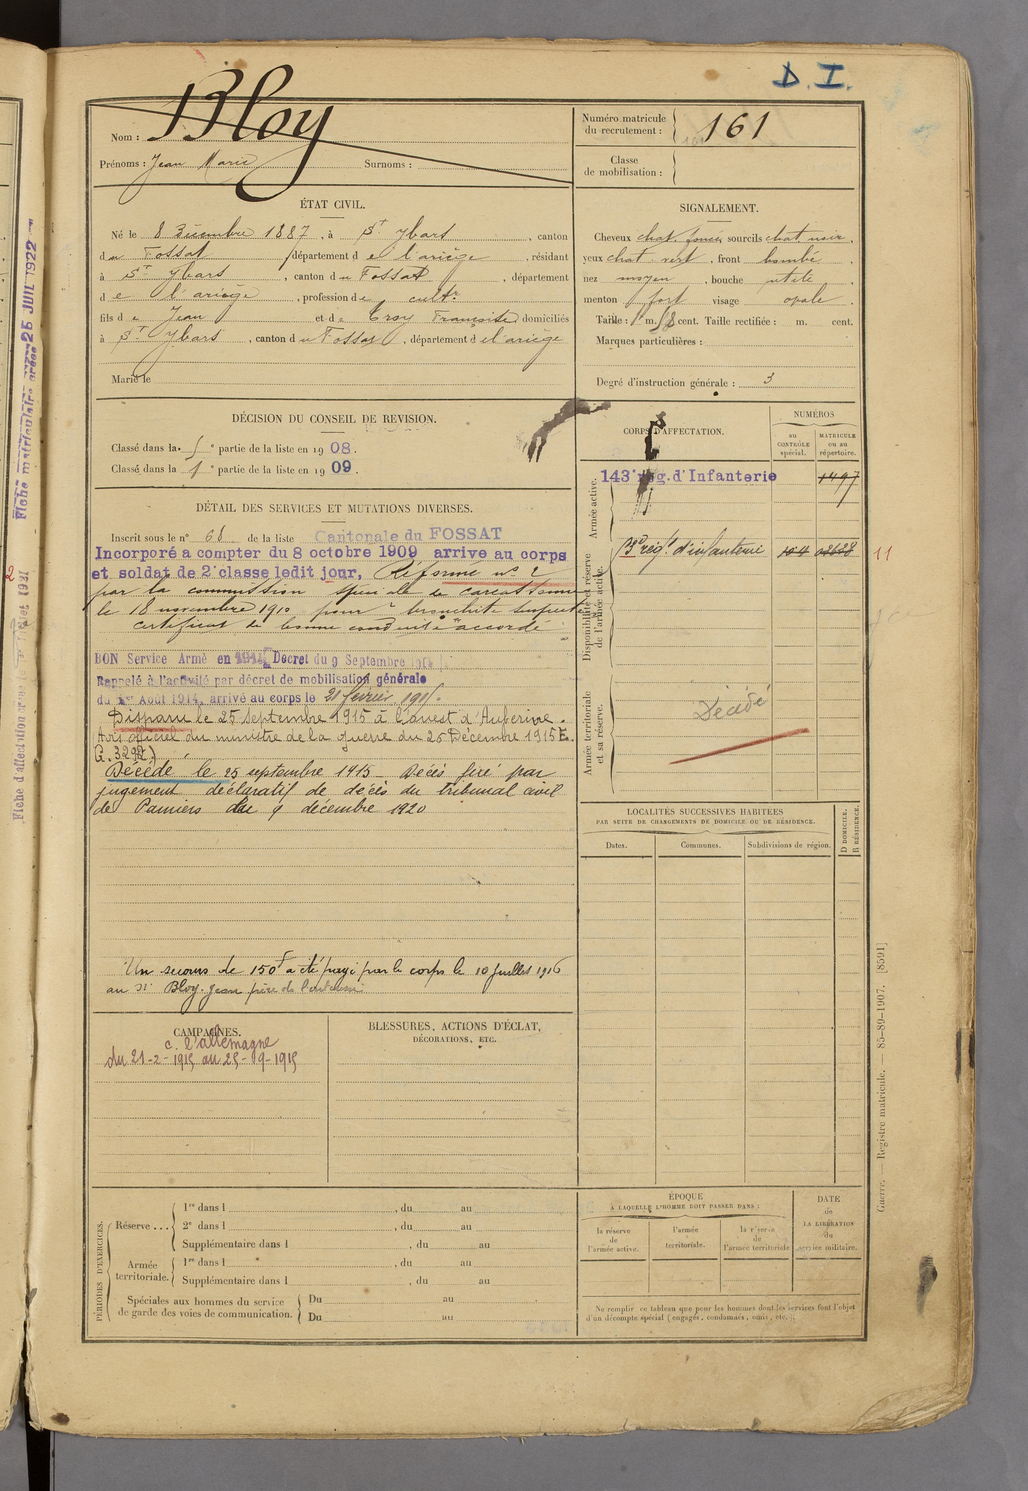 D. I.
Nom : Bloy
Prénoms : Jean Marie Surnoms :
Numéro matricule
du recrutement : 161
Classe
de mobilisation :
ÉTAT CIVIL.
Né le 8 Décembre 1887, à St Ybars, canton
du Fossat, département de l'ariège, résidant
à St Ybars, canton du Fossat, département
de l'ariège, profession de cultr
fils de Jean et de Françoise domiciliés
à St Ybars, canton du Fossat, département de l'ariège
Marié le
SIGNALEMENT.
Cheveux chat. foncé, sourcils chat. noir.
yeux chat vert, front bombé
nez moyen, bouche petite
menton fort visage ovale.
Taille : 1 m. 58 cent. Taille rectifiée : m. cent.
Marques particulières :
Degré d'instruction générale : 3
DÉCISION DU CONSEIL DE REVISION.
Classé dans la 5e partie de la liste en 1908.
Classé dans la 1e partie de la liste en 1909.
DÉTAIL DES SERVICES ET MUTATIONS DIVERSES.
Inscrit sous le n° 68 de la liste Cantonale du FOSSAT
Incorporé a compter du 8 octobre 1909 arrive au corps
et soldat de 2e classe ledit jour, Réformé n° 2
par la commission spéciale de Carcassonne
le 18 novembre 1910 pour "bronchite suspecte"
certificat de bonne conduite "accordé"
BON Service Armé en 1914 Décret du 9 Septembre 1914
Rappelé à l'activité par décret de mobilisation générale
du 1er Août 1914, arrivé au corps le 21 février 1915.
Disparu le 25 Septembre 1915 à l'ouest d'Auberive.
Avis officiel du ministre de la guerre du 26 Décembre 1915 E.
Décédé le 25 septembre 1915 - Décès fixé par
jugement déclaratif de décès du tribunal civil
de Pamiers du 9 décembre 1920
Un secours de 150F a été payé par le corps le 10 juillet 1916
au Sr Bloy Jean père de
CORPS D'AFFECTATION.
NUMÉROS
au
CONTRÔLE
spécial.
MATRICULE
ou au
répertoire.
Armée active.
143e rég. d'Infanterie 1497
Disponibilité et réserve
de l'armée active.
régt d'infanterie
11
Armée territoriale
et sa réserve.
Décédé
LOCALITÉS SUCCESSIVES HABITÉES
PAR SUITE DE CHANGEMENTS DE DOMICILE OU DE RÉSIDENCE.
Dates. Communes. Subdivisions de région.
D DOMICILE.
R RÉSIDENCE.
CAMPAGNES.
c. l'allemagne
du 21-2-1915 au 25-9-1915
BLESSURES, ACTIONS D'ÉCLAT,
DÉCORATIONS, ETC.
PÉRIODES D'EXERCICES.
Réserve...
1re dans l , du au
2e dans l , du au
Supplémentaire dans l , du au
Armée
territoriale.
1re dans l , du au
Supplémentaire dans l , du au
Spéciales aux hommes du service
de garde des voies de communication.
Du au
Du au
ÉPOQUE
À LAQUELLE L'HOMME DOIT PASSER DANS :
la réserve
de
l'armée active.
l'armée
territoriale.
la réserve
de
l'armée territoriale
DATE
de
LA LIBÉRATION
du
service militaire.
Ne remplir ce tableau que pour les hommes dont les services font l'objet
d'un décompte spécial (engagés, condamnés, omis, etc.).
Guerre. — Registre matricule. — 85-89-1907. [8591]